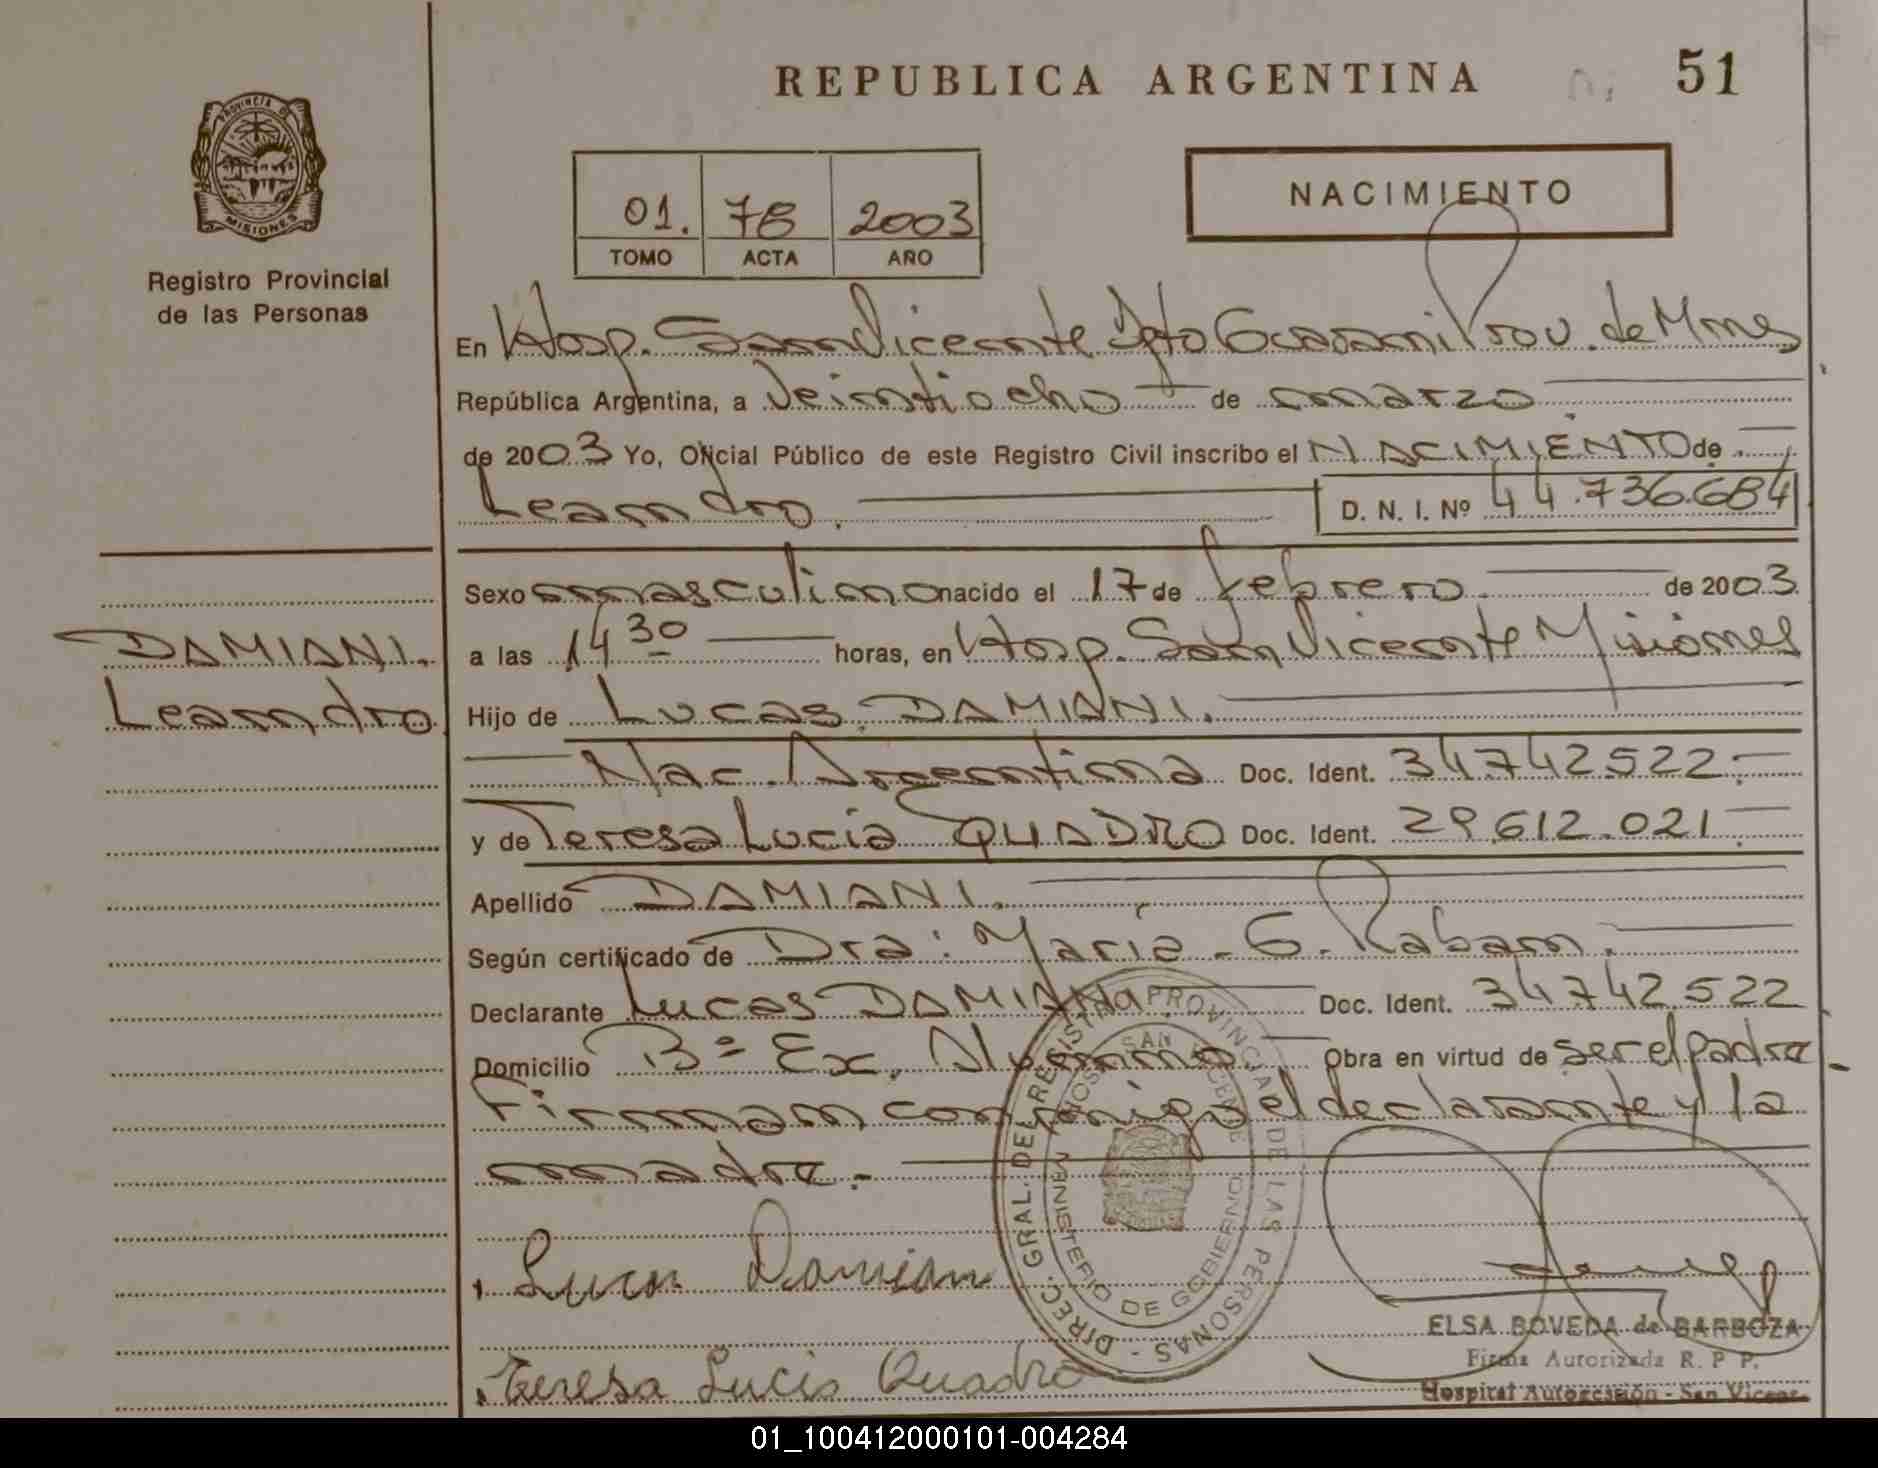 REPUBLICA ARGENTINA
51
PROVINCIA DE
MISIONES
Registro Provincial
de las Personas
01. 78 2003
TOMO ACTA AÑO
NACIMIENTO
En Hosp. San Vicente Dpto Guarani Prov. de Mnes
República Argentina, a Veintiocho de marzo
de 2003 Yo, Oficial Público de este Registro Civil inscribo el NACIMIENTO de
Leandro.
D. N. I. Nº 44.736.684
Sexo masculino nacido el 17 de febrero de 2003.
a las 14 30 horas, en Hosp. San Vicente Misiones
DAMIANI.
Leandro
Hijo de Lucas DAMIANI.
Nac. Argentina Doc. Ident. 34742522.-
y de Teresa Lucia QUADRO Doc. Ident. 29.612.021.-
Apellido DAMIANI.
Según certificado de Dra: Maria - G. Raban.
Declarante Lucas DAMIANI Doc. Ident. 34742522
Domicilio Bº Ex. Obra en virtud de ser el padre
Firman conmigo el declarante y la
madre.-
DIREC. GRAL. DEL REGISTRO PROVINCIAL DE LAS PERSONAS -
HOSP. SAN VICENTE
MINISTERIO DE GOBIERNO
Lucas Damian
Teresa Lucia Quadro
ELSA BOVEDA de BARBOZA
Firma Autorizada R. P. P.
Hospital - San Vicente
01_100412000101-004284